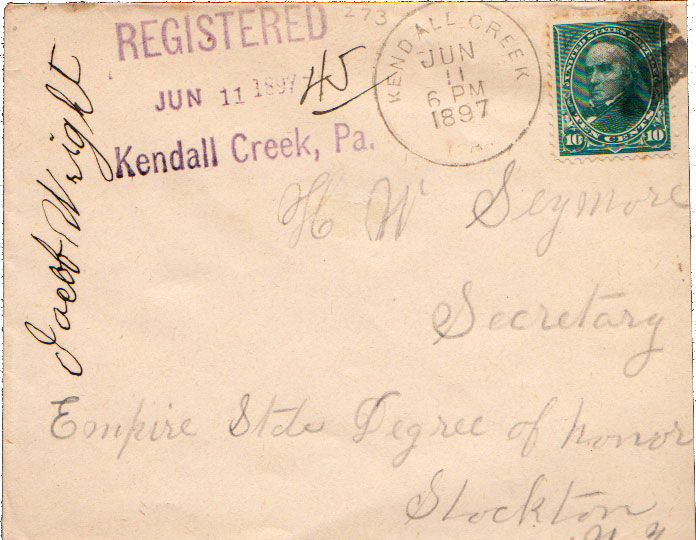 REGISTERED
JUN 11 1897
Kendall Creek, Pa.
273
45
KENDALL CREEK
JUN
11
6 PM
1897
PA.
UNITED STATES POSTAGE
10 TEN CENTS 10
Jacob Wright
H W Seymore
Secretary
Empire State Degree of honor
Stockton
N.Y.